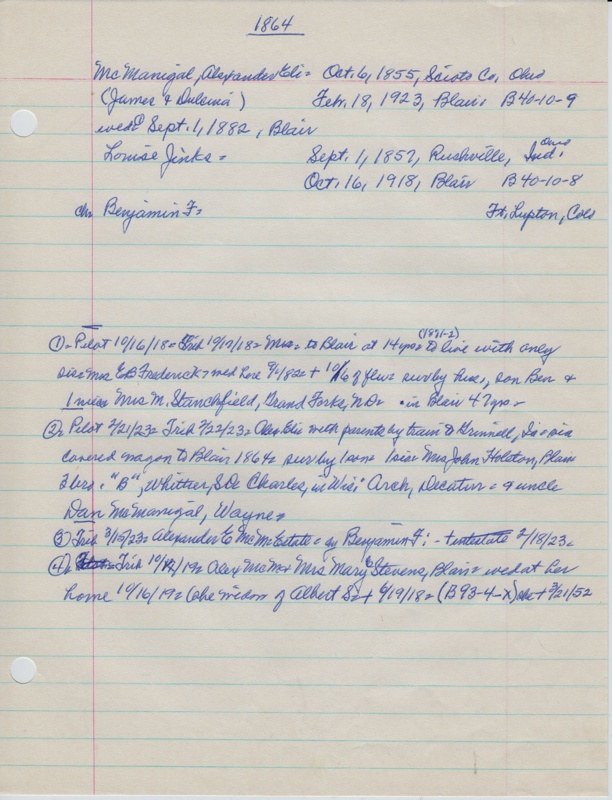 1864
McManigal, Alexander Eli= Oct. 6, 1855, Scioto Co, Ohio
(James & Dulema) Feb. 18, 1923, Blair. B40-10-9
wed Sept. 1, 1882, Blair
Louise Jinks = Sept. 1, 1857, Rushville, Ind. Ohio
Oct. 16, 1918, Blair B40-10-8
ch. Benjamin F= Ft. Lupton, Colo
(1871-2)
①= Pilot 10/16/18= Trib 10/17/18= Mrs= to Blair at 14 yrs= to live with only
sis= Mrs E.B Frederick= wed here 9/1/82= + 10/16 of flu= surv by hus, son Ben &
1 niece Mrs M. Stanchfield, Grand Forks, ND= in Blair 47 yrs=
②= Pilot 2/21/23= Trib 2/22/23= Alex Eli= with parents by train to Grinnell, Ia= via
covered wagon to Blair 1864= surv by 1 son= 1 sis= Mrs John Holston, Blair
3 brs. "B", Whittier, S.D= Charles, in Wis. Arch, Decatur= & uncle
Dan McManigal, Wayne=
③= Trib 3/15/23= Alexander E McM= Estate= by Benjamin F: - + intestate 2/18/23=
④= Trib 10/12/19= Alex McM & Mrs Mary Stevens, Blair= wed at her
home 10/16/19= (she widow of Albert S= + 6/19/18= (B93-4-X) she + 3/21/52